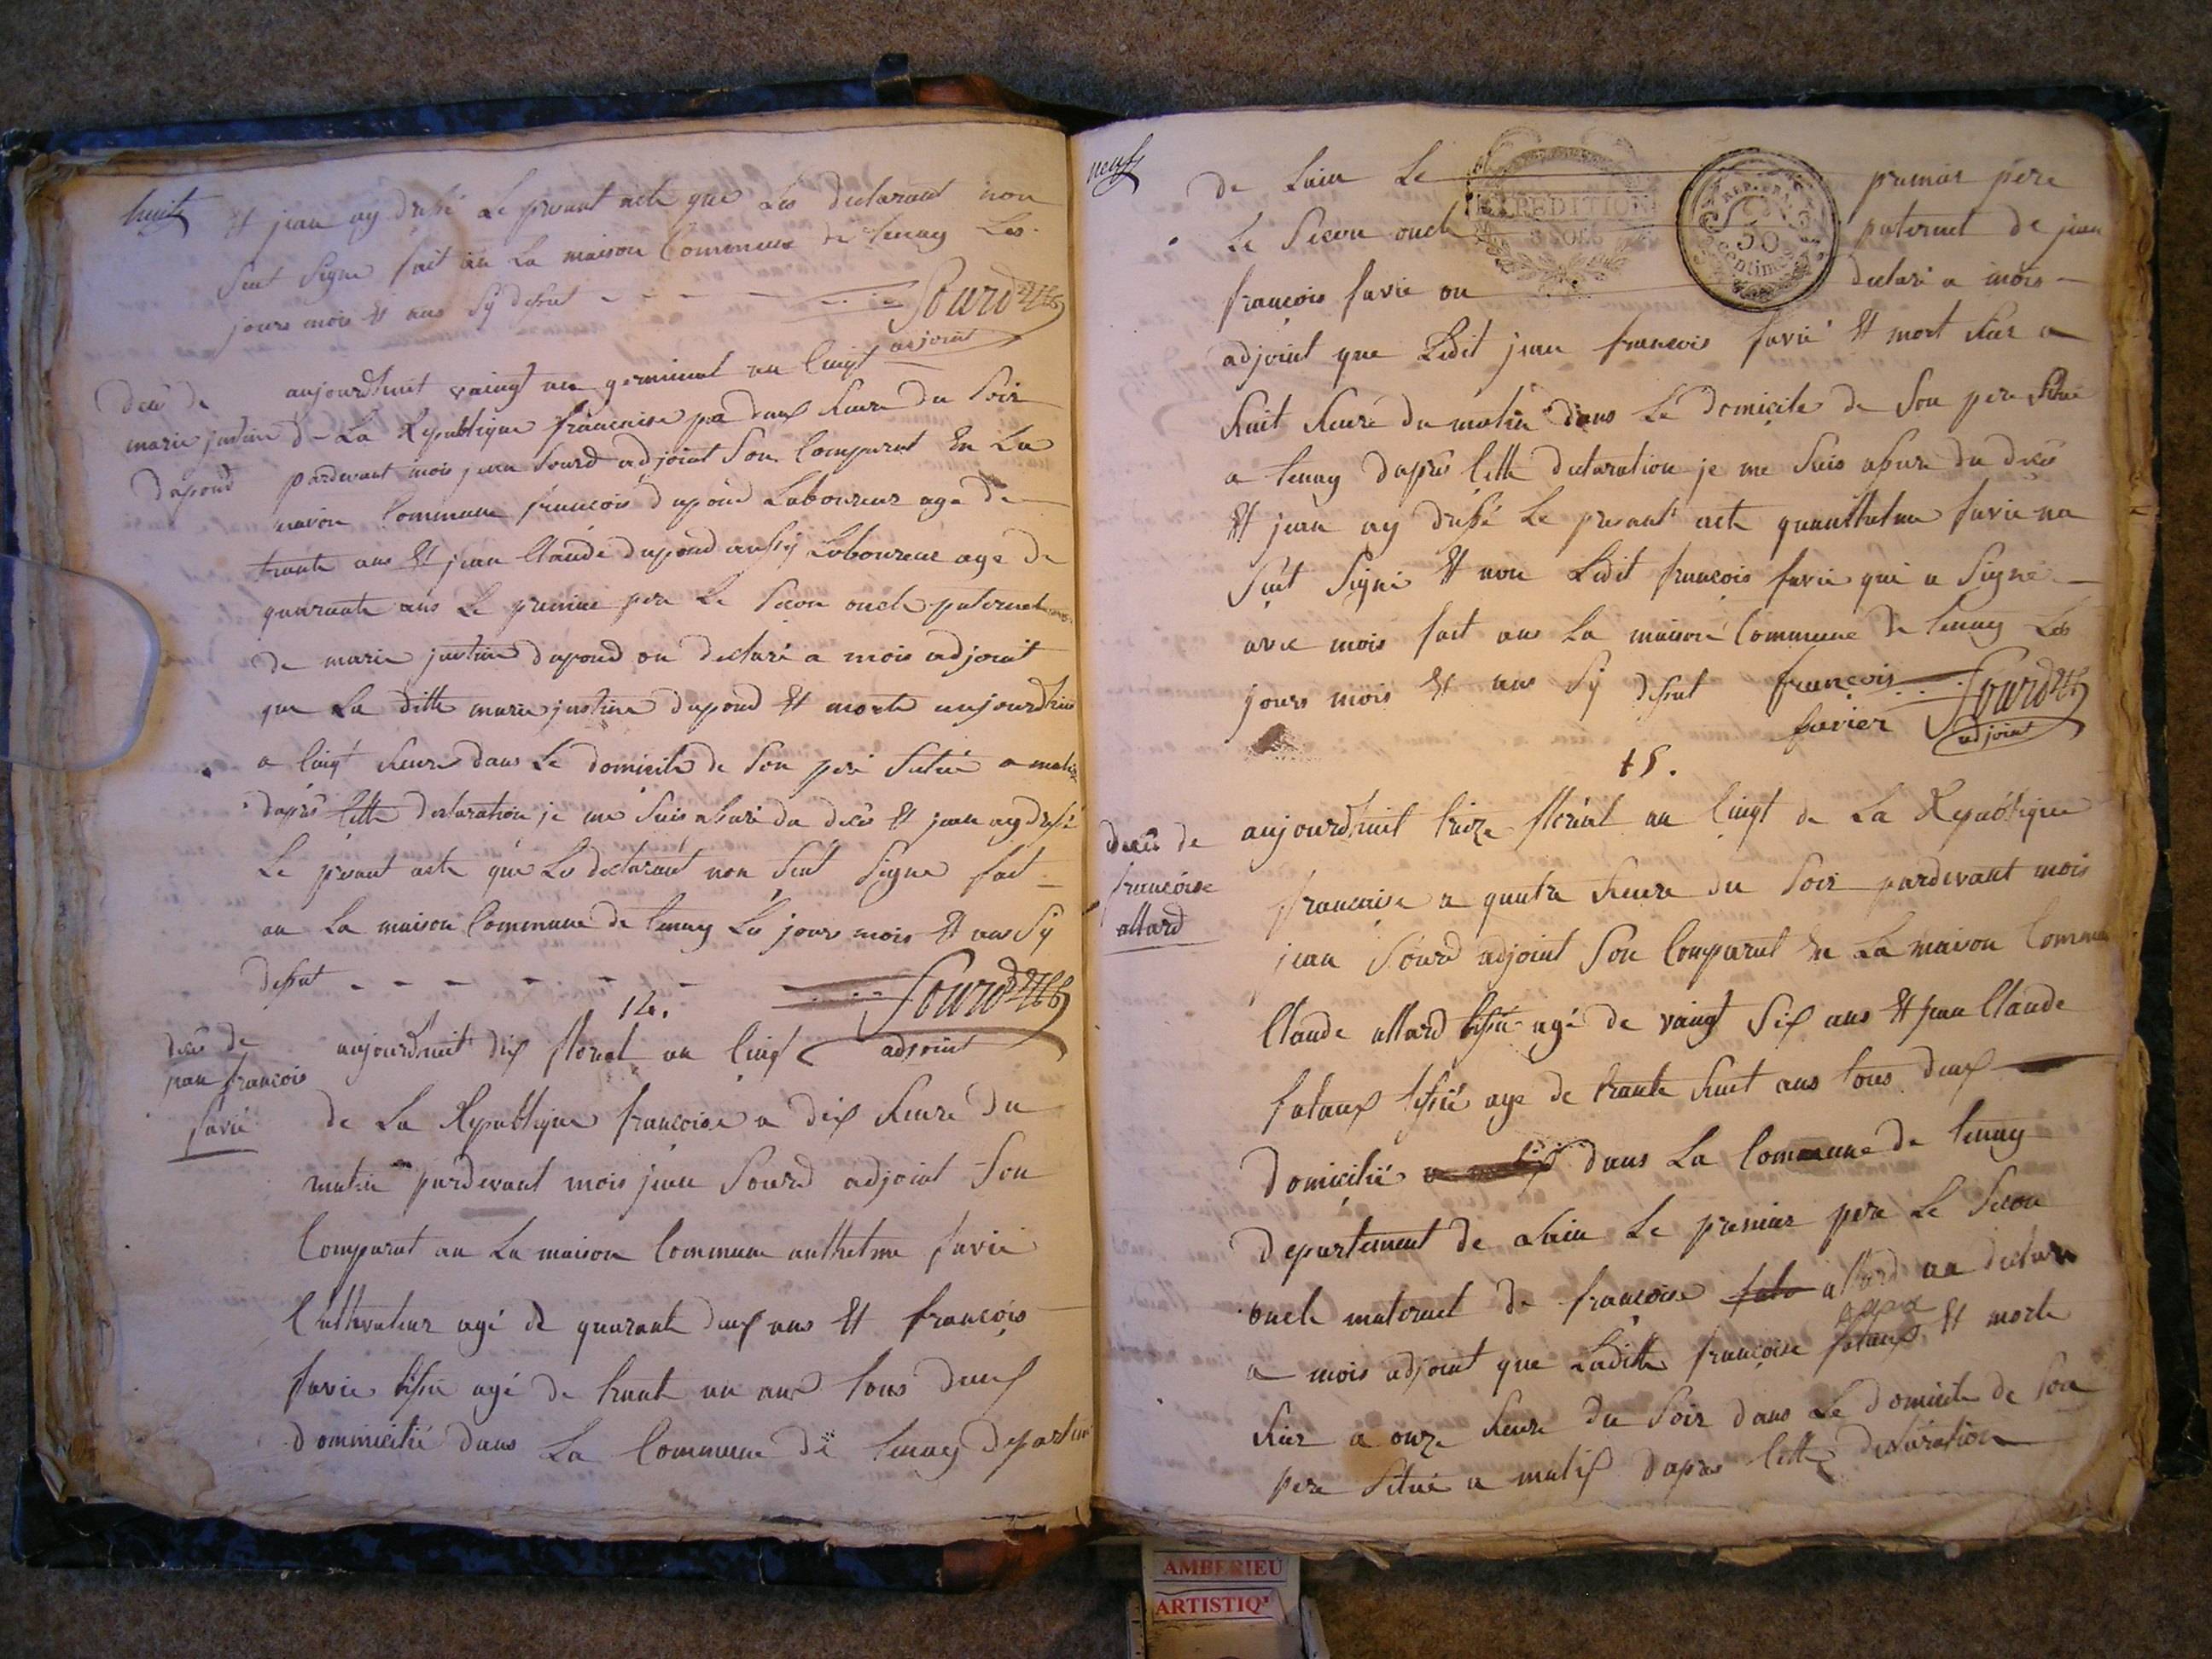 huit
Et jean ay dressé Le presant acte que Les declarant non
Seut Signe fait an La maison Commune de tenay Les
jours mois Et ans Sy desut
Sourd
adjoint
deces de
marie justine
dupond
aujourdhuit vaingt un germinal an Cinqt
de La Republique francaise pa deux heure du Soir
pardevant mois jean Sourd adjoint Son Comparut En La
maison Commune francois dupond Laboureur age de
trante ans Et jean Claude dupond aussy Laboureur age de
quarante ans Le premier pere Le Secon oncle paternel
de marie justine dupond on declaré a mois adjoint
que La ditte marie justine dupond Et morte aujourdhui
a Cinqt heure dans Le domicile de Son pere Situé a malix
dapres Cette declaration je me Suis assuré du deces Et jean ay dressé
Le presant acte que Les declarant non Seut Signe fait
an La maison Commune de tenay Les jours mois Et ans Sy
desut
Sourd
adjoint
14.
deces de
jean francois
favié
aujourdhuit dix floreal an Cinqt
de La Republique francoise a dix heure du
matin pardevant mois jean Sourd adjoint Son
Comparut an La maison Commune anthelme favié
Cultivateur agé de quarante deux ans Et francois
favié tissié agé de trante un ans tous deux
dommicilié dans La Commune de tenay departem
neuf
de Lain Le premier pere
EXPEDITION
REP. FRA.
50
Centimes
Le Secon oncle paternel de jean
francois favié on declaré a mois
adjoint que Ledit jean francois favié Et mort hier a
huit heure du matin dans Le domicile de Son pere Situé
a tenay dapres Cette declaration je me Suis assuré du deces
Et jean ay dressé Le presant acte quanthelme favié na
Seut Signé Et non Ledit francois favié qui a Signé
avec mois fait ans La maison Commune de tenay Les
jours mois Et ans Sy desut
francois
favier
Sourd
adjoint
15.
deces de
francoise
allard
aujourdhuit treize floreal an Cinqt de La Republique
francaise a quatre heure du Soir pardevant mois
jean Sourd adjoint Son Comparut En La maison Commune
Claude allard tissié agé de vaingt Six ans Et jean Claude
fataux tissié age de trante huit ans tous deux
domicilié dans La Commune de tenay
departement de Lain Le premier pere Le Secon
oncle maternel de francoise allard on declaré
a mois adjoint que Laditte francoise fataux Et morte
hier a onze heure du Soir dans Le domicile de Son
pere Situé a malix dapres Cette declaration
AMBERIEU
ARTISTIQ'